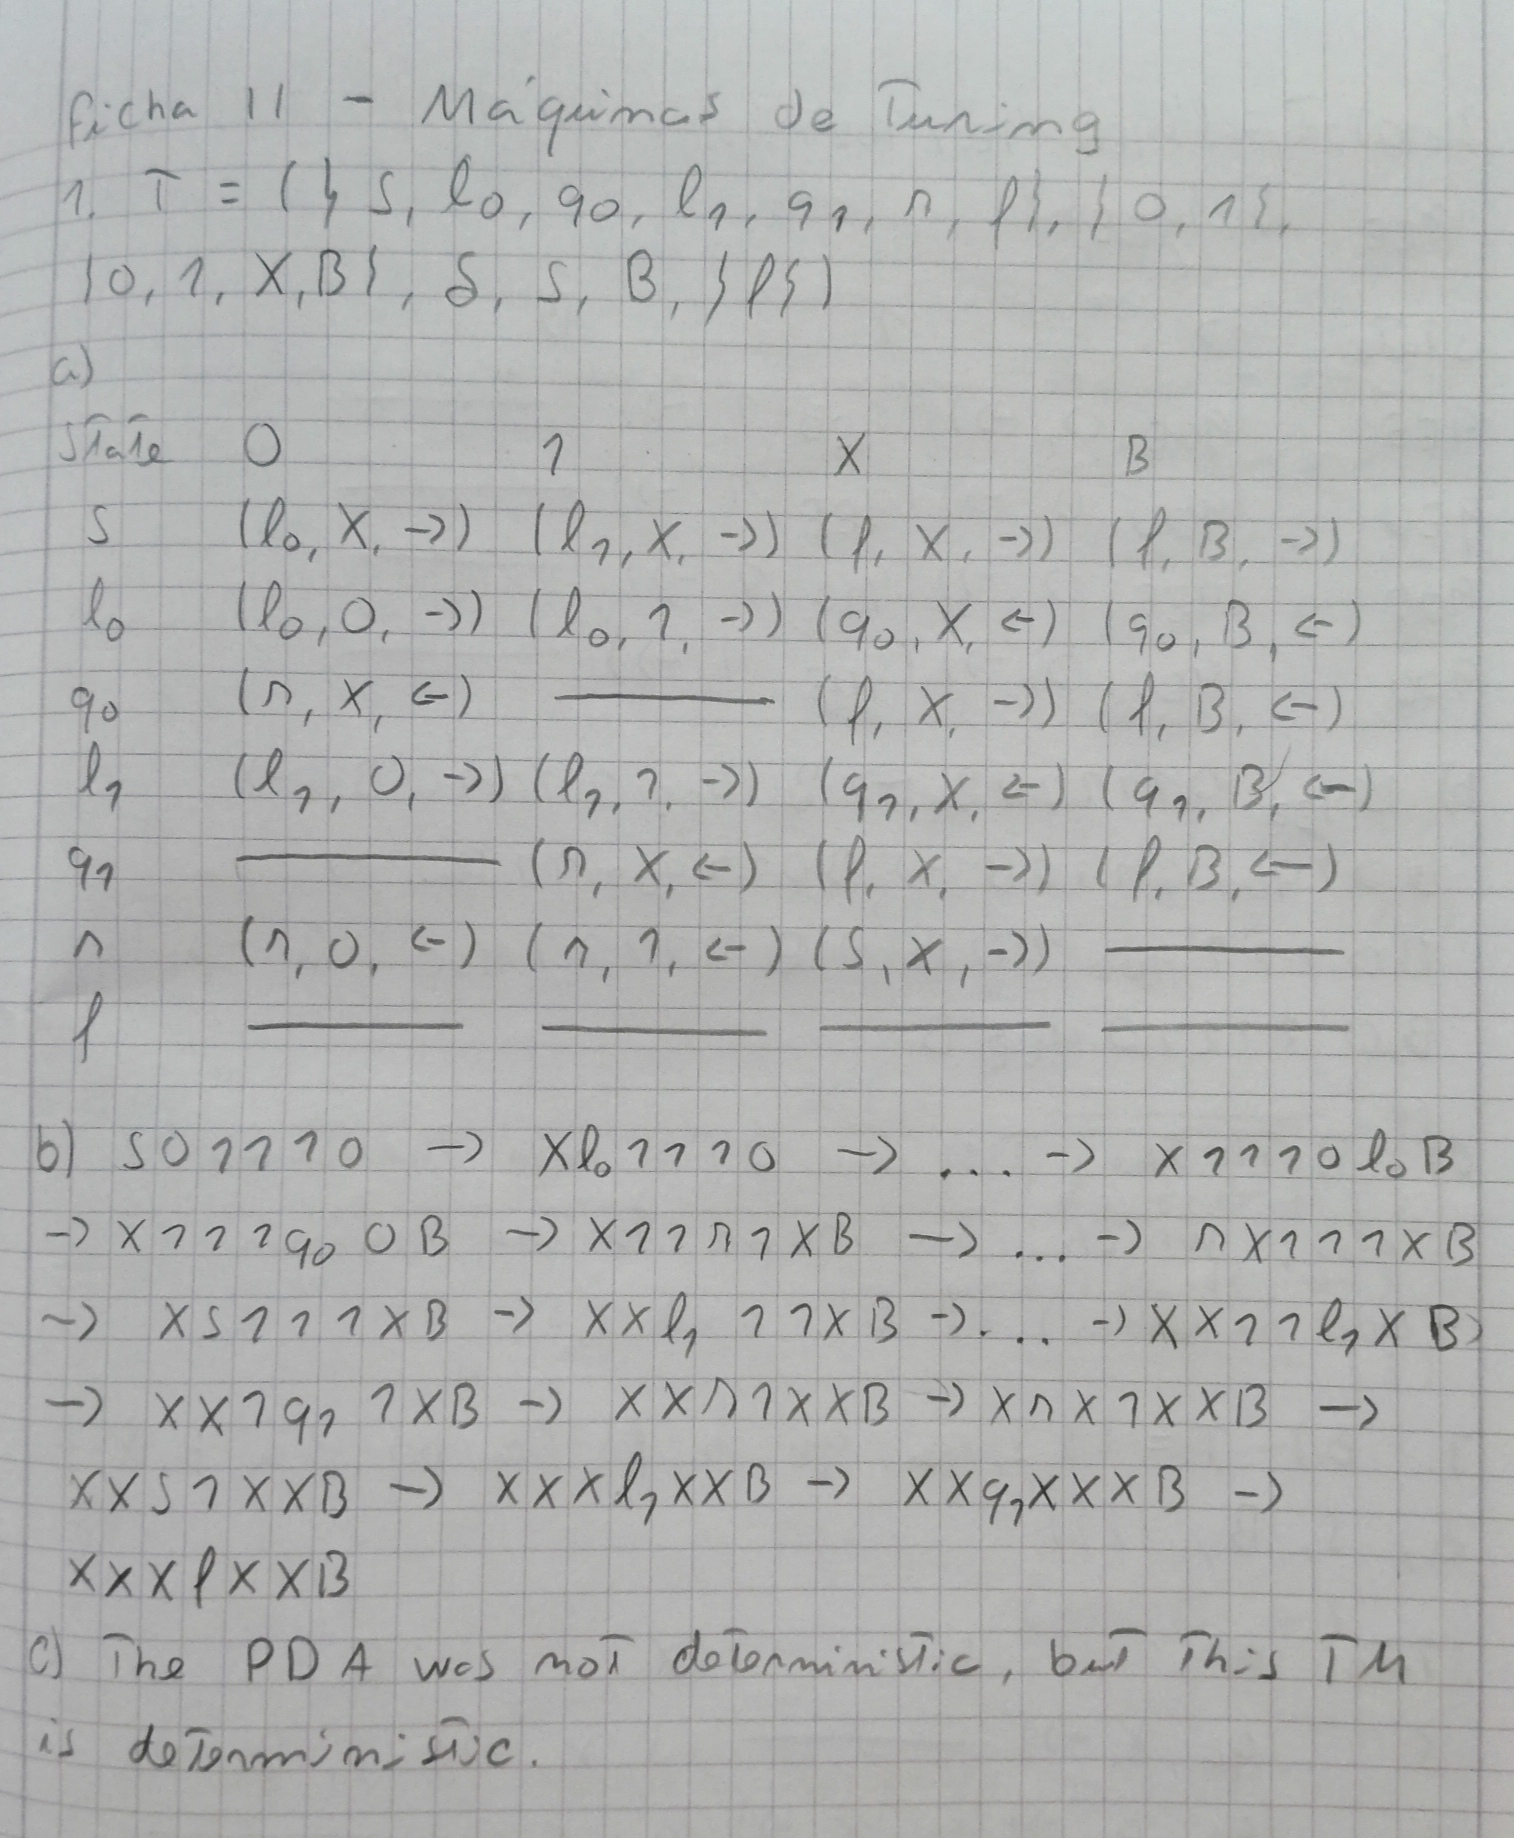 ficha 11 - Máquinas de Turing
1. T = ({ s, l0, q0, l1, q1, r, f}, {0, 1},
{0, 1, X, B}, δ, s, B, {f})
a)
State 0 1 X B
s (l0, X, →) (l1, X, →) (f, X, →) (f, B, →)
l0 (l0, 0, →) (l0, 1, →) (q0, X, ←) (q0, B, ←)
q0 (r, X, ←) — (f, X, →) (f, B, ←)
l1 (l1, 0, →) (l1, 1, →) (q1, X, ←) (q1, B, ←)
q1 — (r, X, ←) (f, X, →) (f, B, ←)
r (r, 0, ←) (r, 1, ←) (s, X, →) —
f — — — —
b) s01110 → Xl01110 → ... → X1110l0B
→ X111q00B → X11r1XB → ... → rX111XB
→ Xs111XB → XXl111XB → ... → XX11l1XB
→ XX1q11XB → XXr1XXB → XrX1XXB →
XXs1XXB → XXXl1XXB → XXq1XXXB →
XXXfXXB
c) The PDA was not deterministic, but this TM
is deterministic.